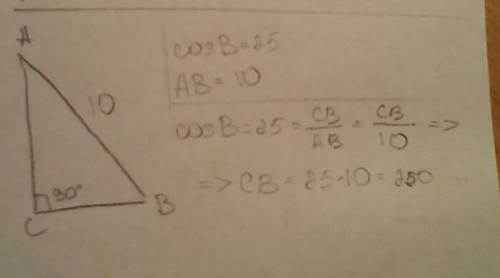 A
10
90°
C
B
cos B = 25
AB = 10
cos B = 25 = CB/AB = CB/10 =>
=> CB = 25·10 = 250